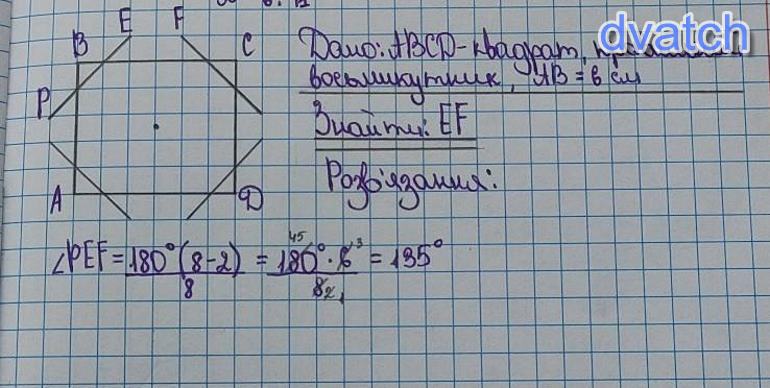 dvatch
E F
B C
Дано: ABCD-квадрат,
восьмикутник, AB = 6 см
P
Знайти: EF
Розв'язання:
A D
∠PEF = 180°(8-2)/8 = 180°·6/8 = 135°
45 3
2 1